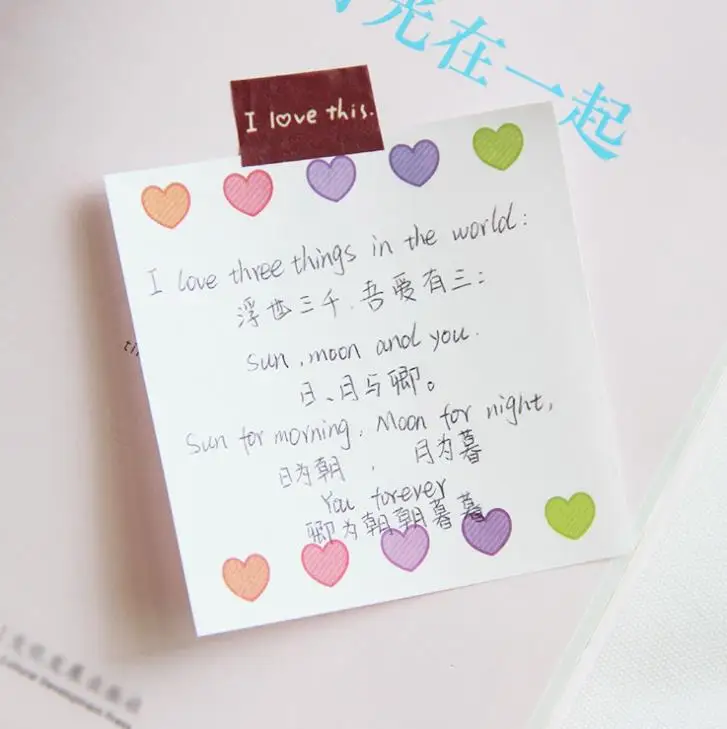 光在一起
I love this.
I love three things in the world:
浮世三千.吾爱有三:
Sun, moon and you.
日、月与卿。
Sun for morning, Moon for night,
日为朝 , 月为暮
You forever
卿为朝朝暮暮